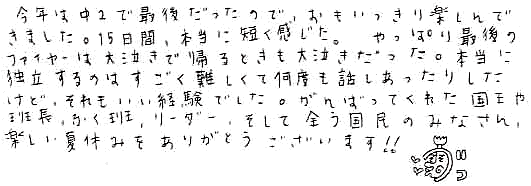 今年は中2で最後だったので、おもいっきり楽しんで
きました。15日間、本当に短く感じた。 やっぱり最後の
ファイヤーは大泣きで帰るときも大泣きだった。本当に
独立するのはすごく難しくて何度も話しあったりした
けど、それもいい経験でした。がんばってくれた国王や
班長、かく班、リーダー、そして全う国民のみなさん、
楽しい夏休みをありがとうございます!!